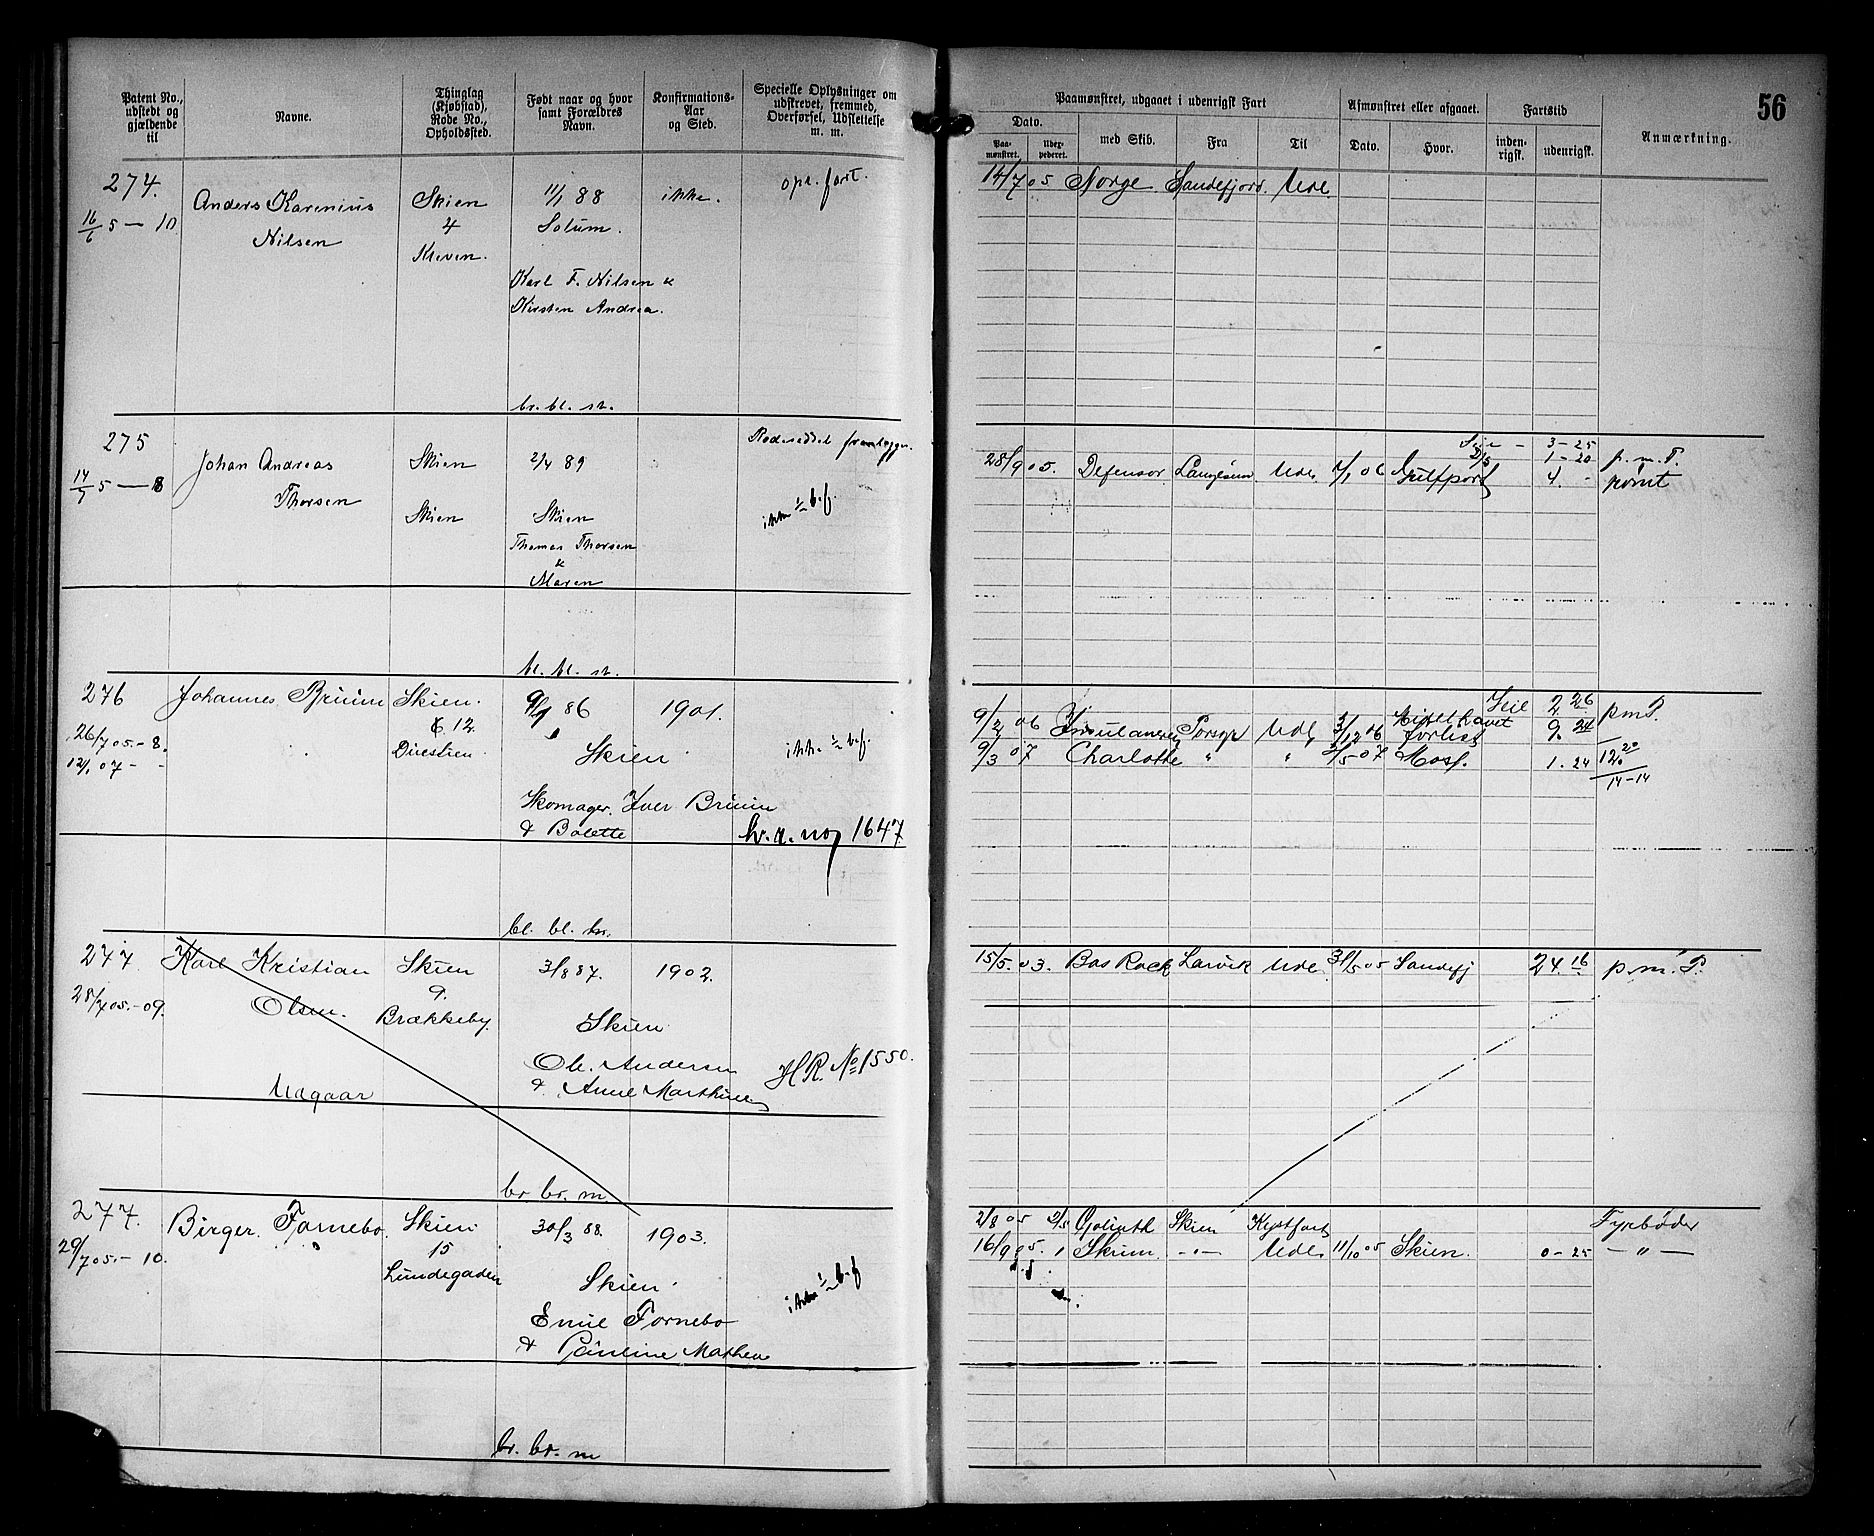 Patent No., udstedt og gjældende til
Navne.
Thinglag (Kjøbstad), Rode No., Opholdssted.
Født naar og hvor samt Forældres Navn.
Konfirmations-Aar og Sted.
Specielle Oplysninger om udskrevet, fremmed, Overførsel, Udslettelse m. m.
Paamønstret, udgaaet i udenrigsk Fart
Afmønstret eller afgaaet.
Fartstid
Anmærkning.
56
Dato.
Paa-mønstret.
Udex-pederet.
med Skib.
Fra
Til
Dato.
Hvor.
inden-rigsk.
udenrigsk.
274.
16/6 5 — 10
Anders Karenius
Nilsen
Skien
4
Kleven.
11/1 88
Solum.
Karl F. Nilsen &
Kirsten Andrea.
br. bl. st.
ikke.
opr. fart.
14/7 05 Norge Sandefjord. Ude.
275
14/7 5 — 8
Johan Andreas
Thorsen
Skien
Skien
2/4 89
Skien
Thomas Thorsen
&
Maren
bl. bl. st.
Rodeseddel fremlægges.
ikke b.f.
3 - 25
1 - 20 p. m. P.
28/9 05. Defensor Langesund Ude 1/1 06 Gulfport 4. -
276
26/7 05.-8.
12/1 07 - -
Johannes Bruun
Skien.
12.
Duestien.
86
Skien
Skomager. Iver Bruun
& Bolette
bl. bl. br.
1901.
ikke b.f.
1647
Seil 2 26 pmP.
9/2 06 Insulaneren Porsgr Ude 3/12 06 forlist 9. 24
9/3 07 Charlotte " " 07 Moss. 1. 24
12 20
14-14
277.
28/7 05.-09.
Karl Kristian
Olsen.
Udgaar
Skien
9.
Brækkeby.
3/8 87.
Skien
Ole Andersen
& Anne Marthine
br. br. m.
1902.
H. R. No 1550.
15/5. 03. Bas Rock Larvik Ude. 31/5 05 Sandefj 24 16 p. m. P.
277.
29/7 05.- 10.
Birger Fornebo.
Skien
15
Lundegaden
30/3 88.
Skien
Emil Fornebo
& Pauline Mathea
br. br. m
1903.
ikke b.f
2/8 05 Goliath Skien Kystfart Fyrbøder
16/9 05. Skrim. -"- Ude 11/10 05 Skien. 0 - 25 - " -